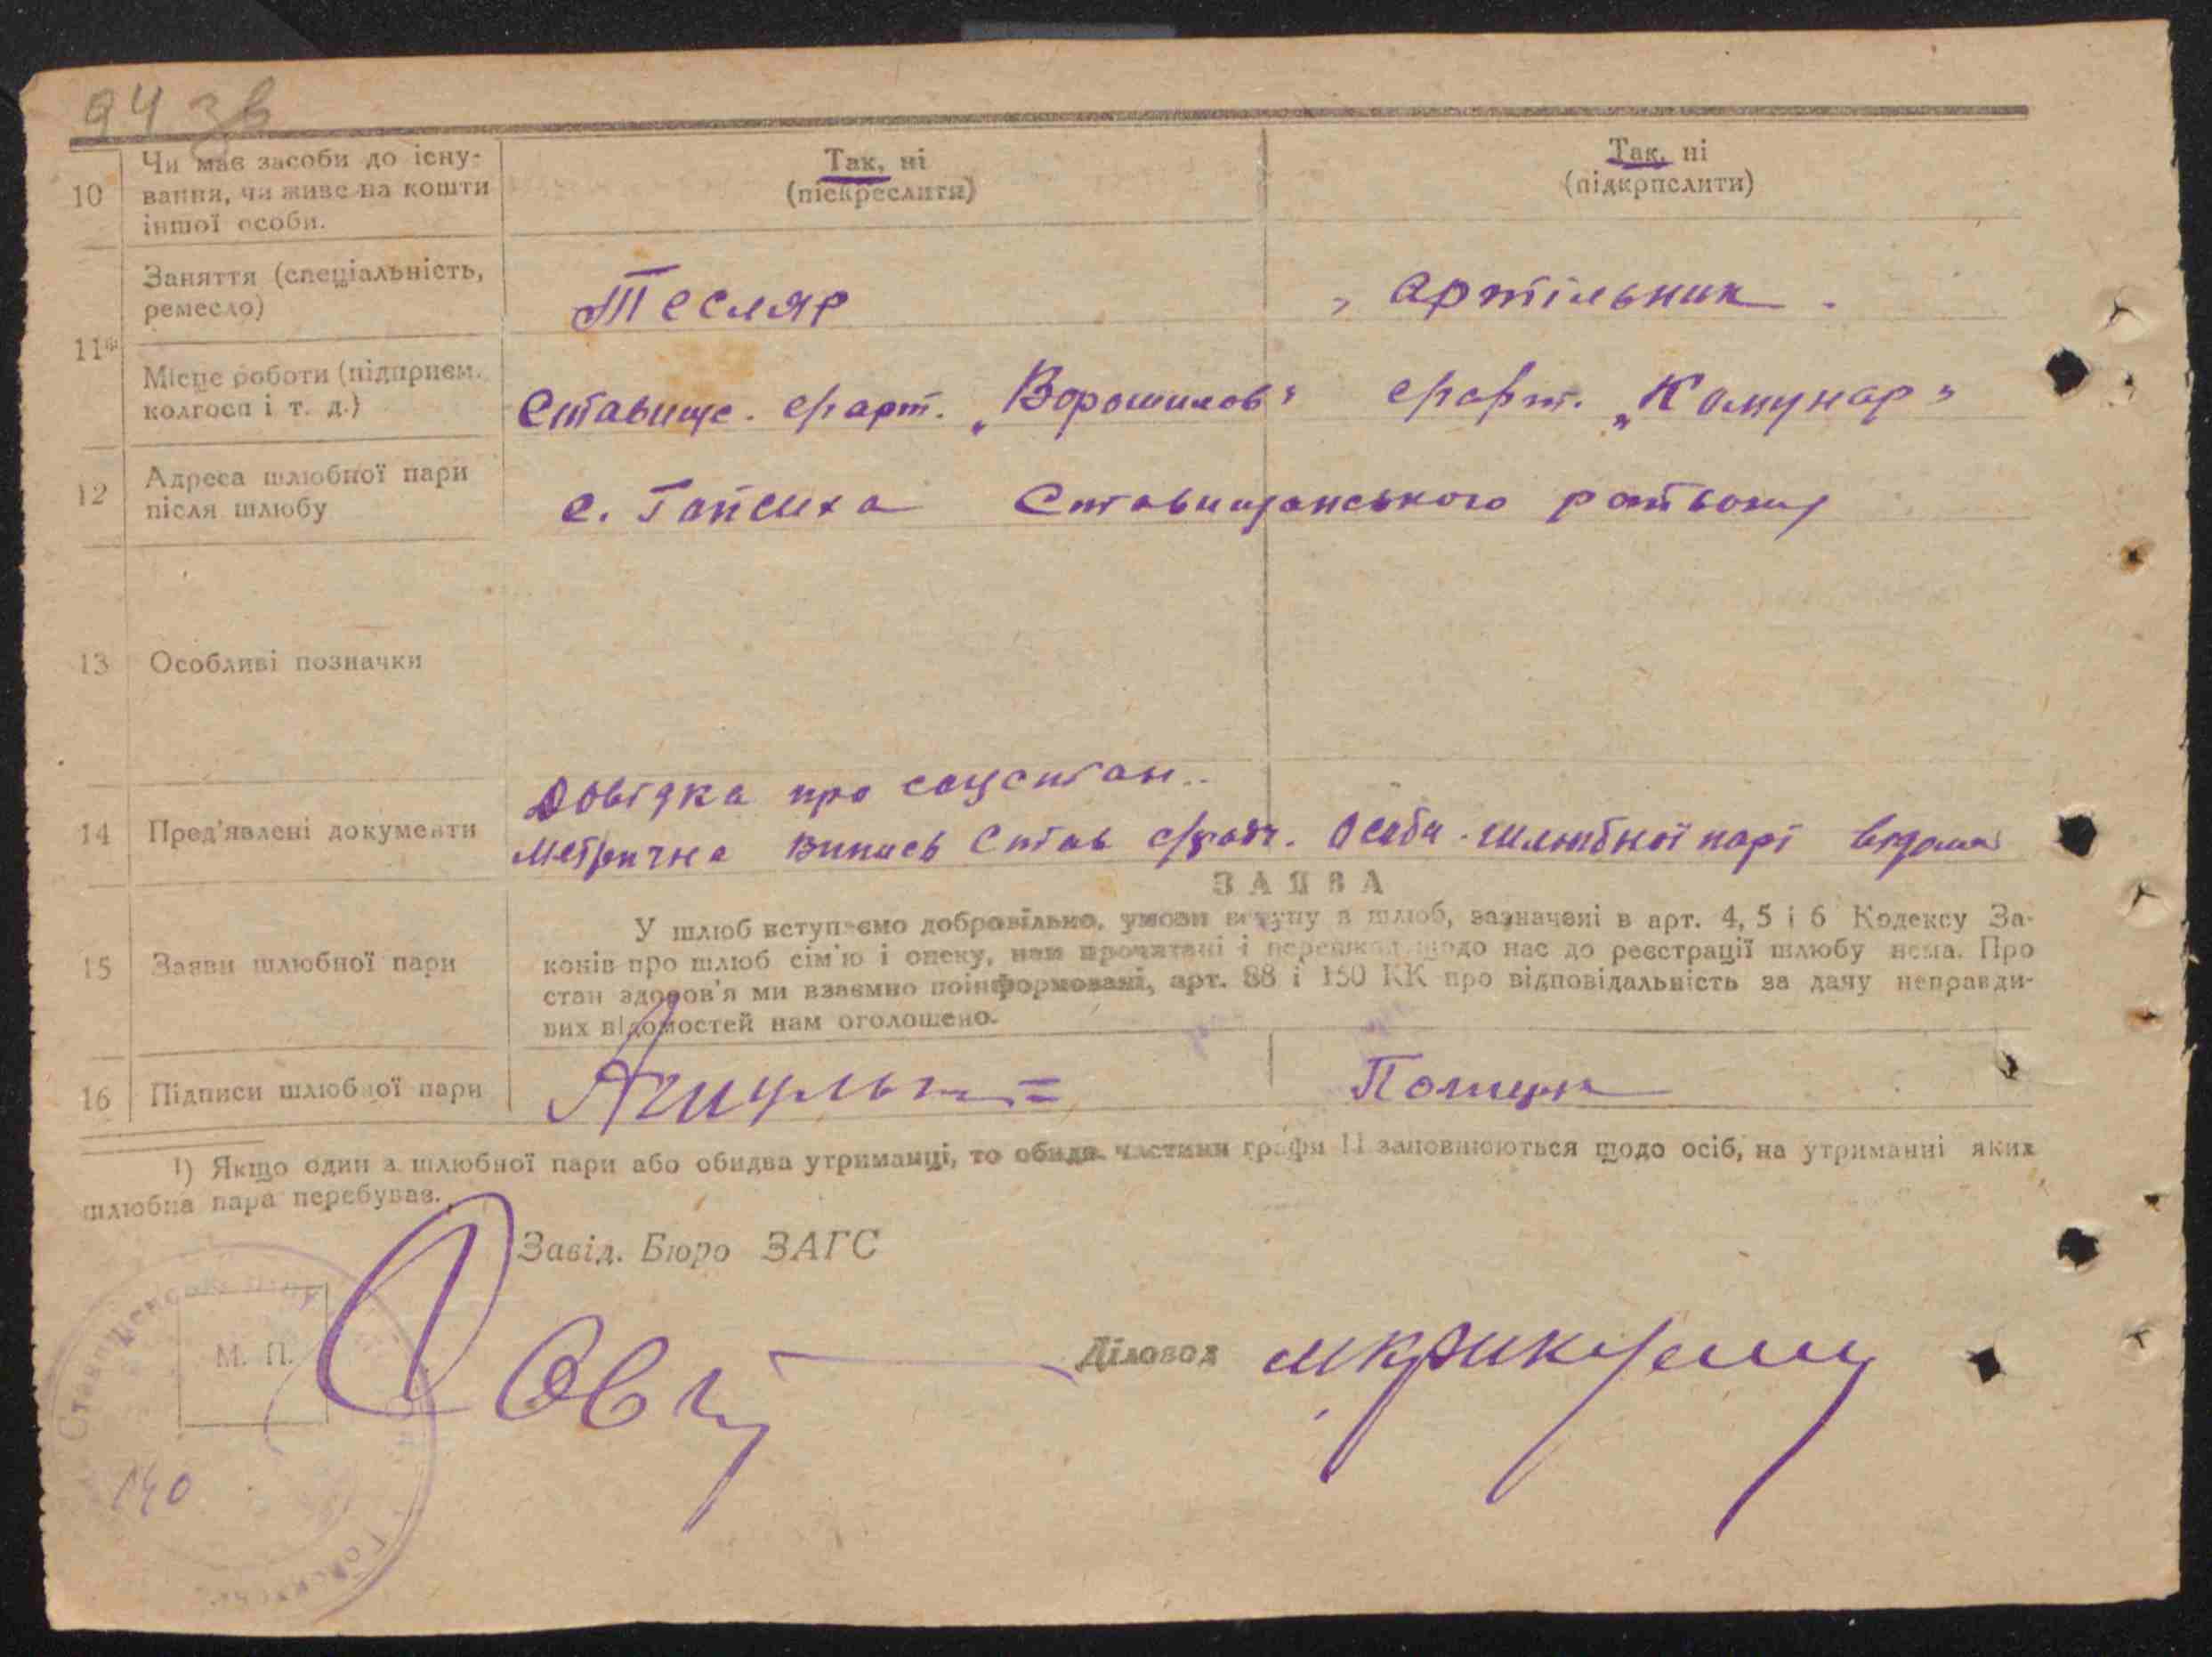 94 зв
10 Чи має засоби до існу-
вання, чи живе на кошти
іншої особи.
Так, ні
(піскреслити)
Так, ні
(підкрпслити)
11
Заняття (спеціальність,
ремесло)
Тесляр
артільник
Місце роботи (підприєм.
колгосп і т. д.)
Ставище. с/гарт. „Ворошилов"
с/гарт. „Комунар"
12 Адреса шлюбної пари
після шлюбу
с. Гапсиха Ставищанського району
13 Особливі позначки
14 Пред'явлені документи
Довідка про соцстан..
Метрична випись Став с/ради. Особи шлюбної парі відома
ЗАЯВА
15 Заяви шлюбної пари
У шлюб вступаємо добровільно, умови вступу в шлюб, зазначені в арт. 4, 5 і 6 Кодексу За-
конів про шлюб сім'ю і опеку, нам прочитані і перешкод щодо нас до реєстрації шлюбу нема. Про
стан здоров'я ми взаємно поінформовані, арт. 88 і 150 КК про відповідальність за дачу неправди-
вих відомостей нам оголошено.
16 Підписи шлюбної пари
1) Якщо один з шлюбної пари або обидва утриманці, то обидв. частини графи 11 заповнюються щодо осіб, на утриманні яких
шлюбна пара перебуває.
Завід. Бюро ЗАГС
М. П.
Діловод
140